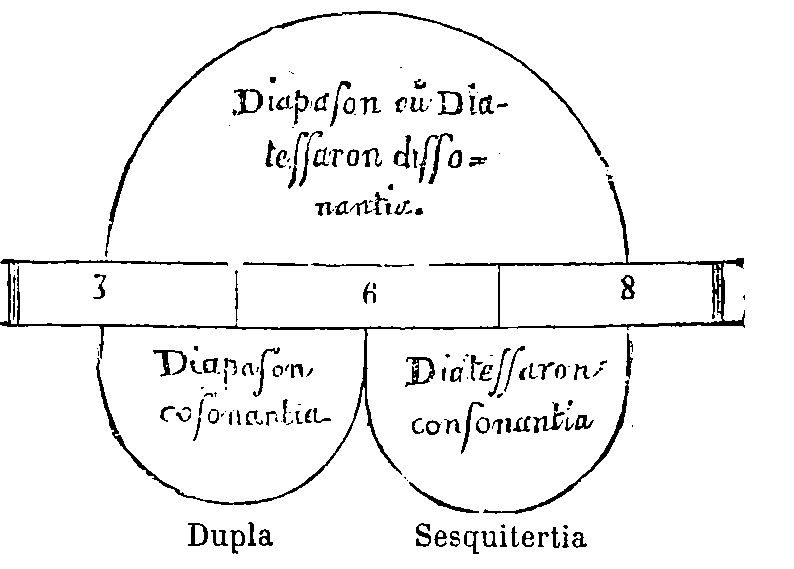 Diapaſon cū Dia-
teſſaron diſſo=
nantia.
3 6 8
Diapaſon,
coſonantia
Diateſſaron,
conſonantia
Dupla
Sesquitertia